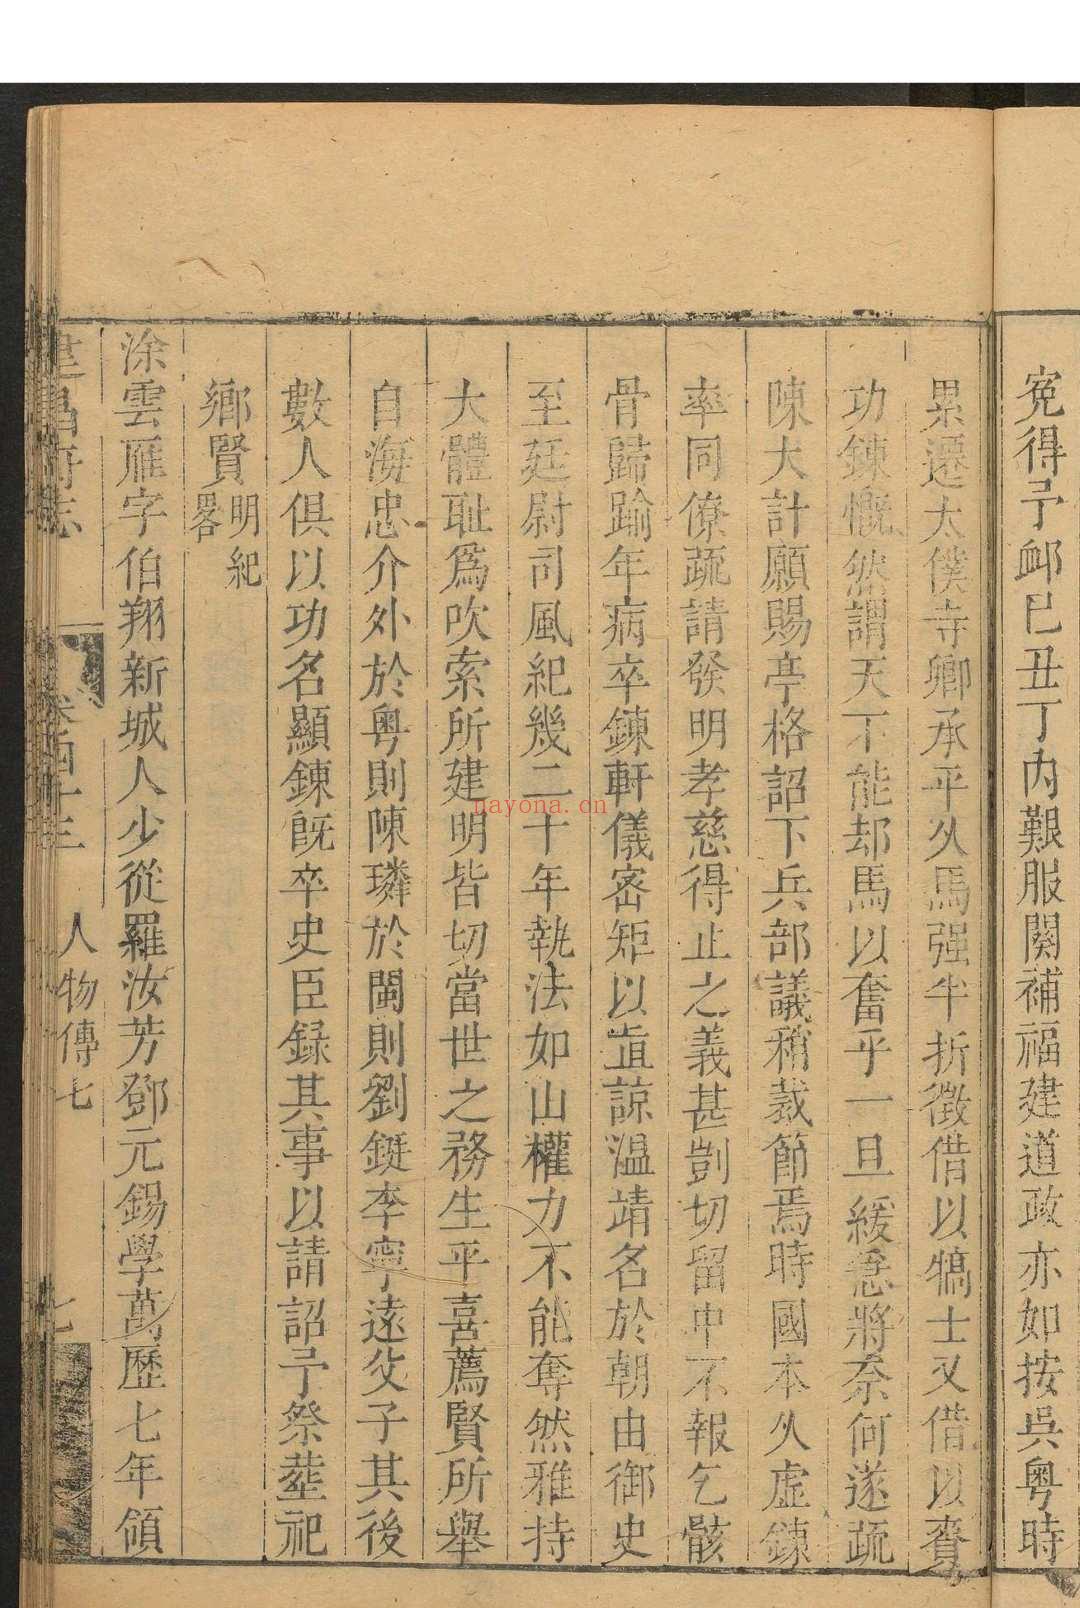 寃得予䘏已丑丁內艱服闋補福建道政亦如按吳粵時
累遷太僕寺卿承平久馬强半折徵借以犒士又借以賚
功鍊慨然謂天下能却馬以奮乎一旦緩急將奈何遂疏
陳大計願賜亭格詔下兵部議稍裁節焉時國本久虛鍊
率同僚疏請發明孝慈得止之義甚剴切留中不報乞骸
骨歸踰年病卒鍊軒儀密矩以直諒溫靖名於朝由御史
至廷尉司風紀幾二十年執法如山權力不能奪然雅持
大體耻爲吹索所建明皆切當世之務生平喜薦賢所舉
自海忠介外於粵則陳璘於閩則劉鋌李寧遠父子其後
數人俱以功名顯鍊旣卒史臣録其事以請詔予祭塟祀
鄉賢明紀畧
涂雲雁字伯翔新城人少從羅汝芳鄧元錫學萬歷七年領
建昌府志 卷四十三 人物傳七 七
nayona.cn